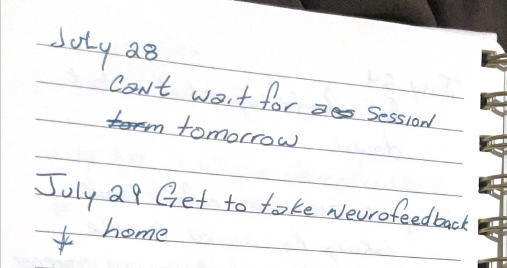 July 28
Cant wait for session
tomorrow
July 29 Get to take Neurofeedback
home